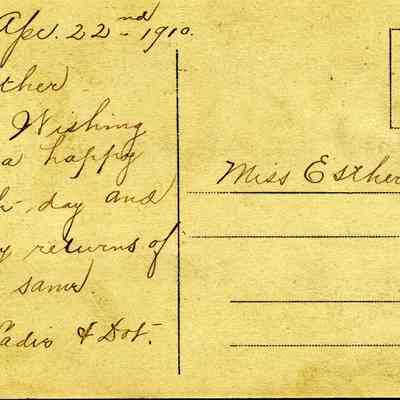 Apr. 22nd 1910.
ther
Wishing
a happy
h-day and
y returns of
same.
Sadie & Dot.
Miss Esther